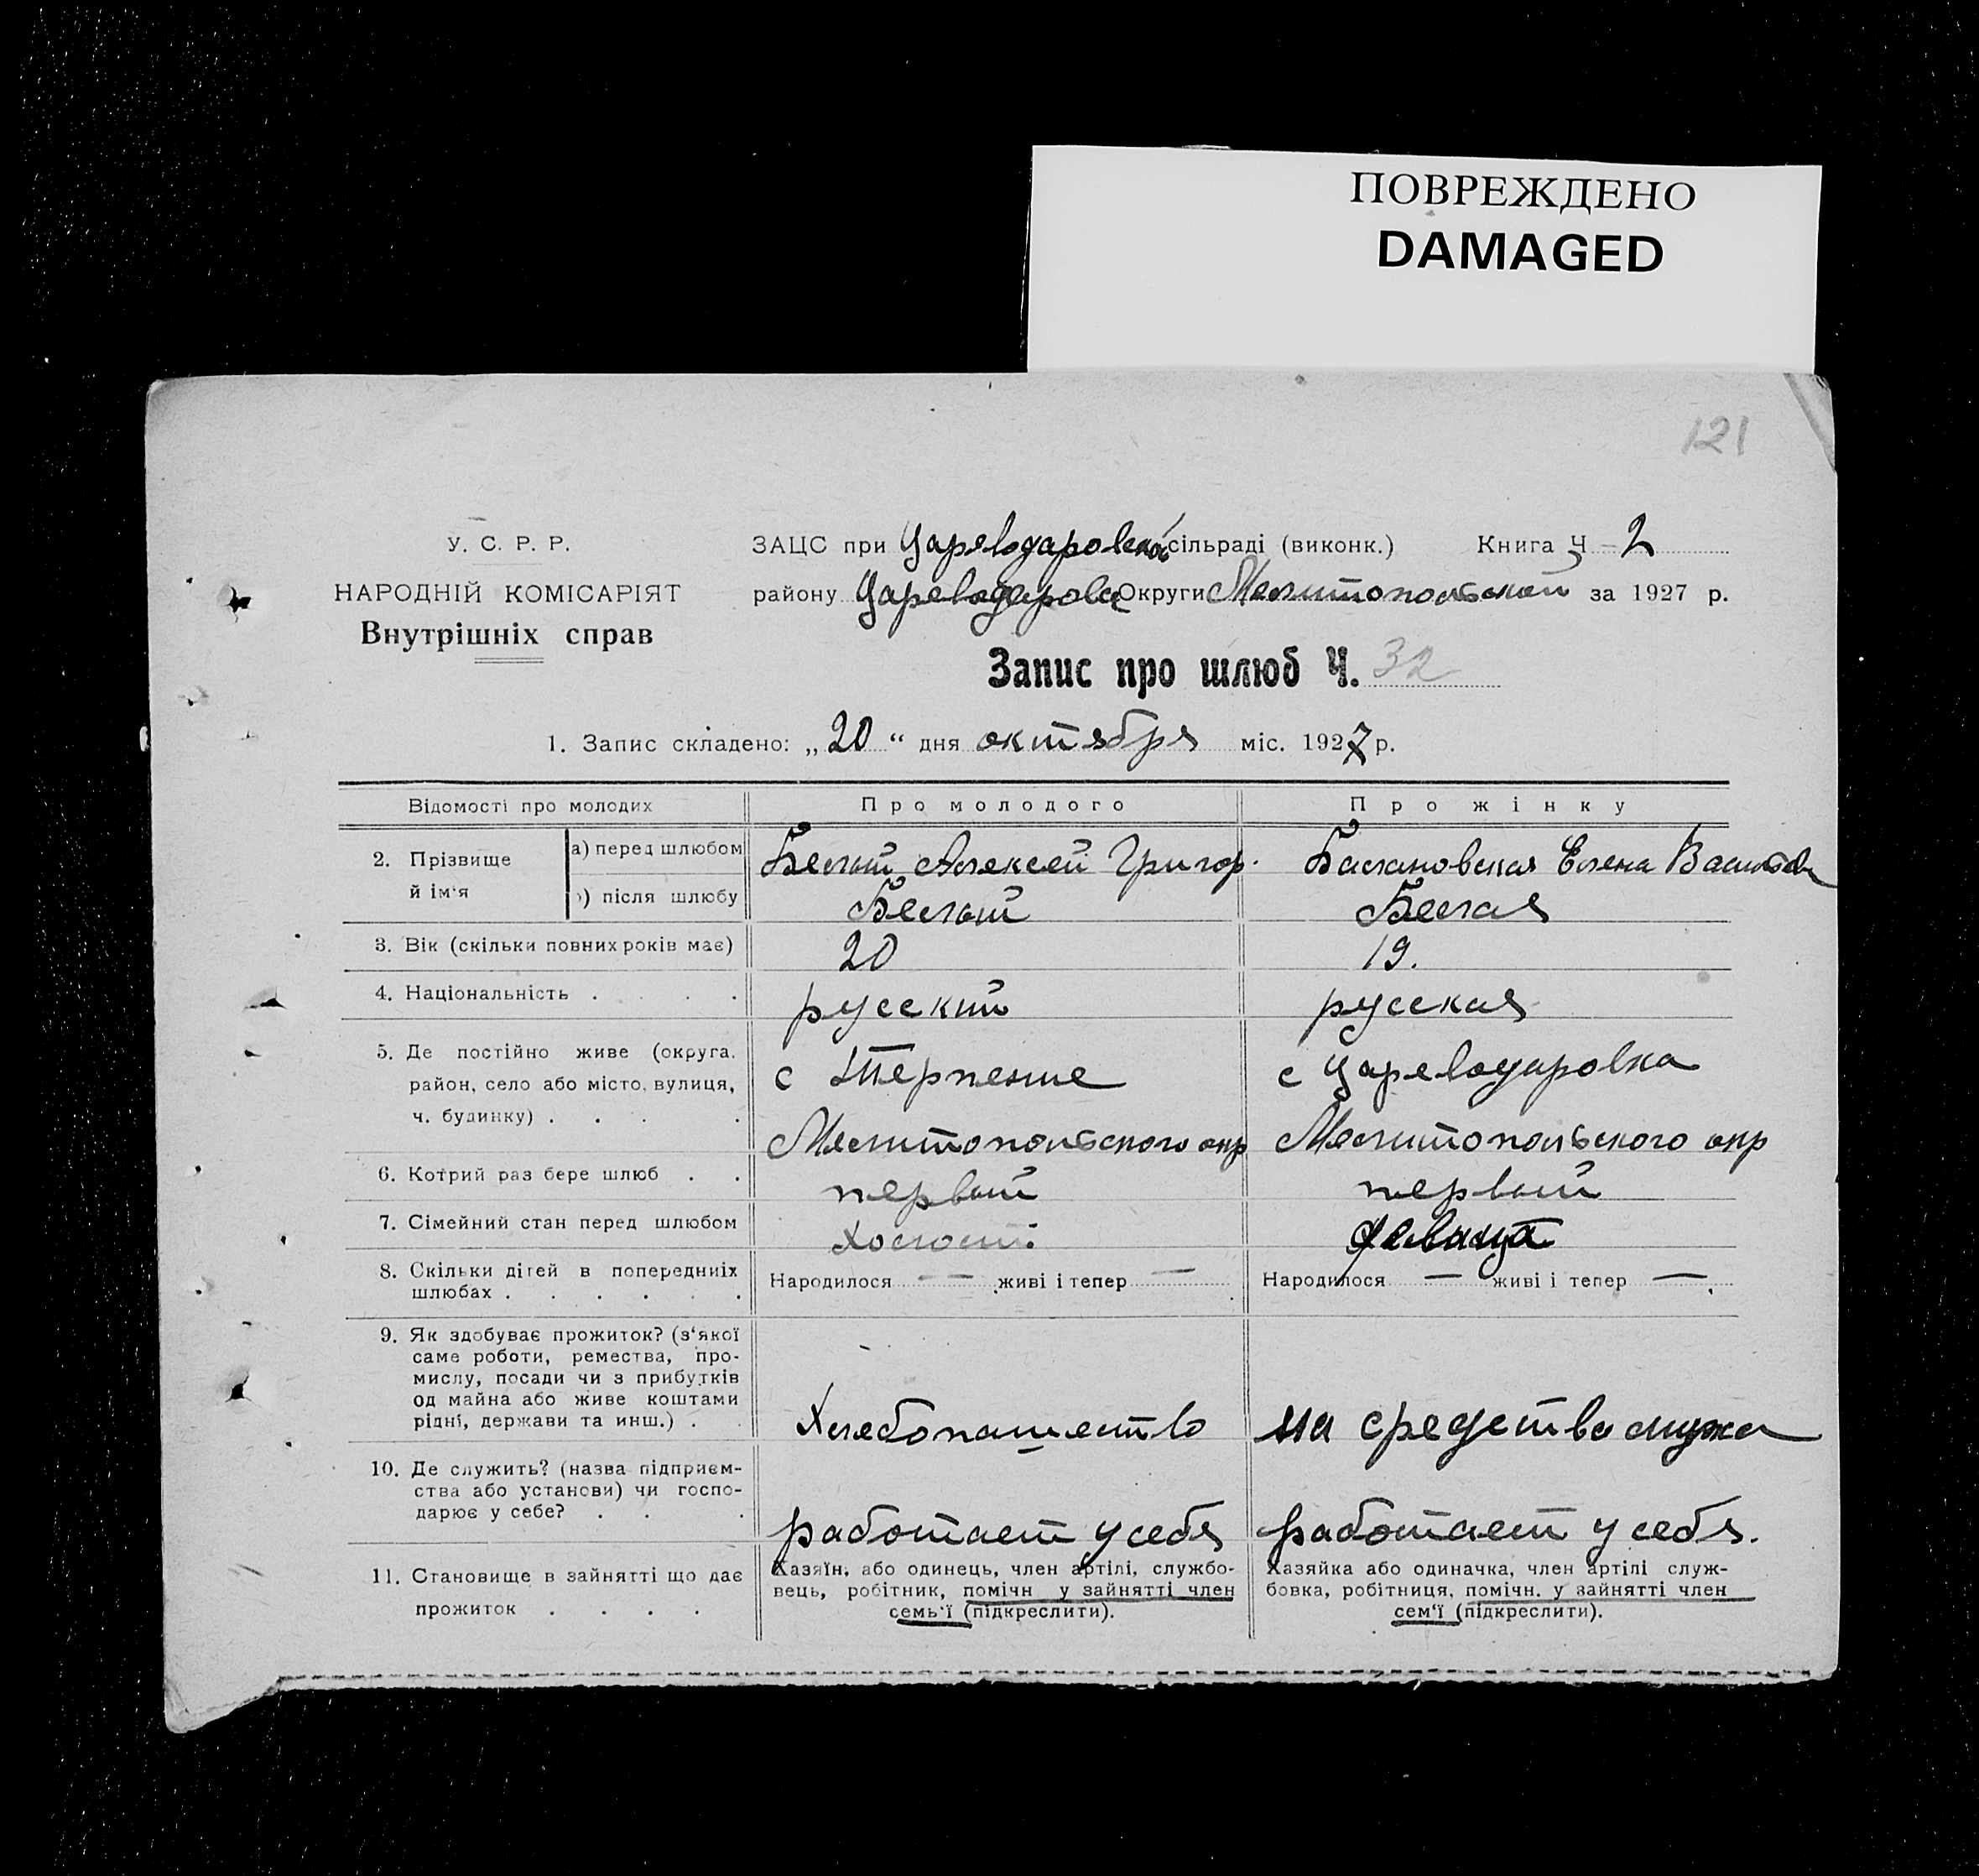 ПОВРЕЖДЕНО
DAMAGED
121
У. С. Р. Р.
НАРОДНІЙ КОМІСАРІЯТ
Внутрішніх справ
ЗАЦС при Цареводаровской сільраді (виконк.) Книга Ч 2
району Цареводаровск Округи Мелитопольской за 1927 р.
Запис про шлюб Ч. 32
1. Запис складено: „20“ дня октября міс. 1927 р.
Відомості про молодих
Про молодого
Про жінку
2. Прізвище й ім‘я
а) перед шлюбом
Белый Алексей Григор.
Баклановская Елена Васильев
) після шлюбу
Белый
Белая
3. Вік (скільки повних років має)
20
19.
4. Національність . . . .
русский
русская
5. Де постійно живе (округа,
район, село або місто, вулиця,
ч. будинку) . . . .
с Терпение
Мелитопольского окр
с Цареводаровка
Мелитопольского окр
6. Котрий раз бере шлюб . .
первый
первый
7. Сімейний стан перед шлюбом
Холост.
девица
8. Скільки дітей в попередниіх
шлюбах . . . . . .
Народилося — живі і тепер —
Народилося — живі і тепер —
9. Як здобуває прожиток? (з‘якої
саме роботи, ремества, про-
мислу, посади чи з прибутків
од майна або живе коштами
рідні, держави та инш.) . .
Хлебопашество
на средства мужа
10. Де служить? (назва підприєм-
ства або установи) чи госпо-
дарює у себе? . . .
работает у себя
работает у себя.
11. Становище в зайнятті що дає
прожиток . . . .
Хазяїн, або одинець, член артілі, службо-
вець, робітник, помічн у зайнятті член
семь‘ї (підкреслити).
Хазяйка або одиначка, член артілі служ-
бовка, робітниця, помічн. у зайнятті член
сем‘ї (підкреслити).